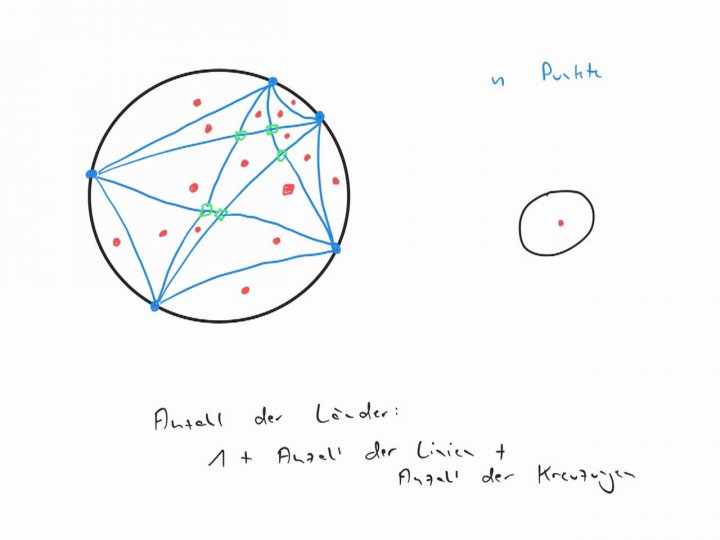 n Punkte
Anzahl der Länder:
1 + Anzahl der Linien +
Anzahl der Kreuzungen